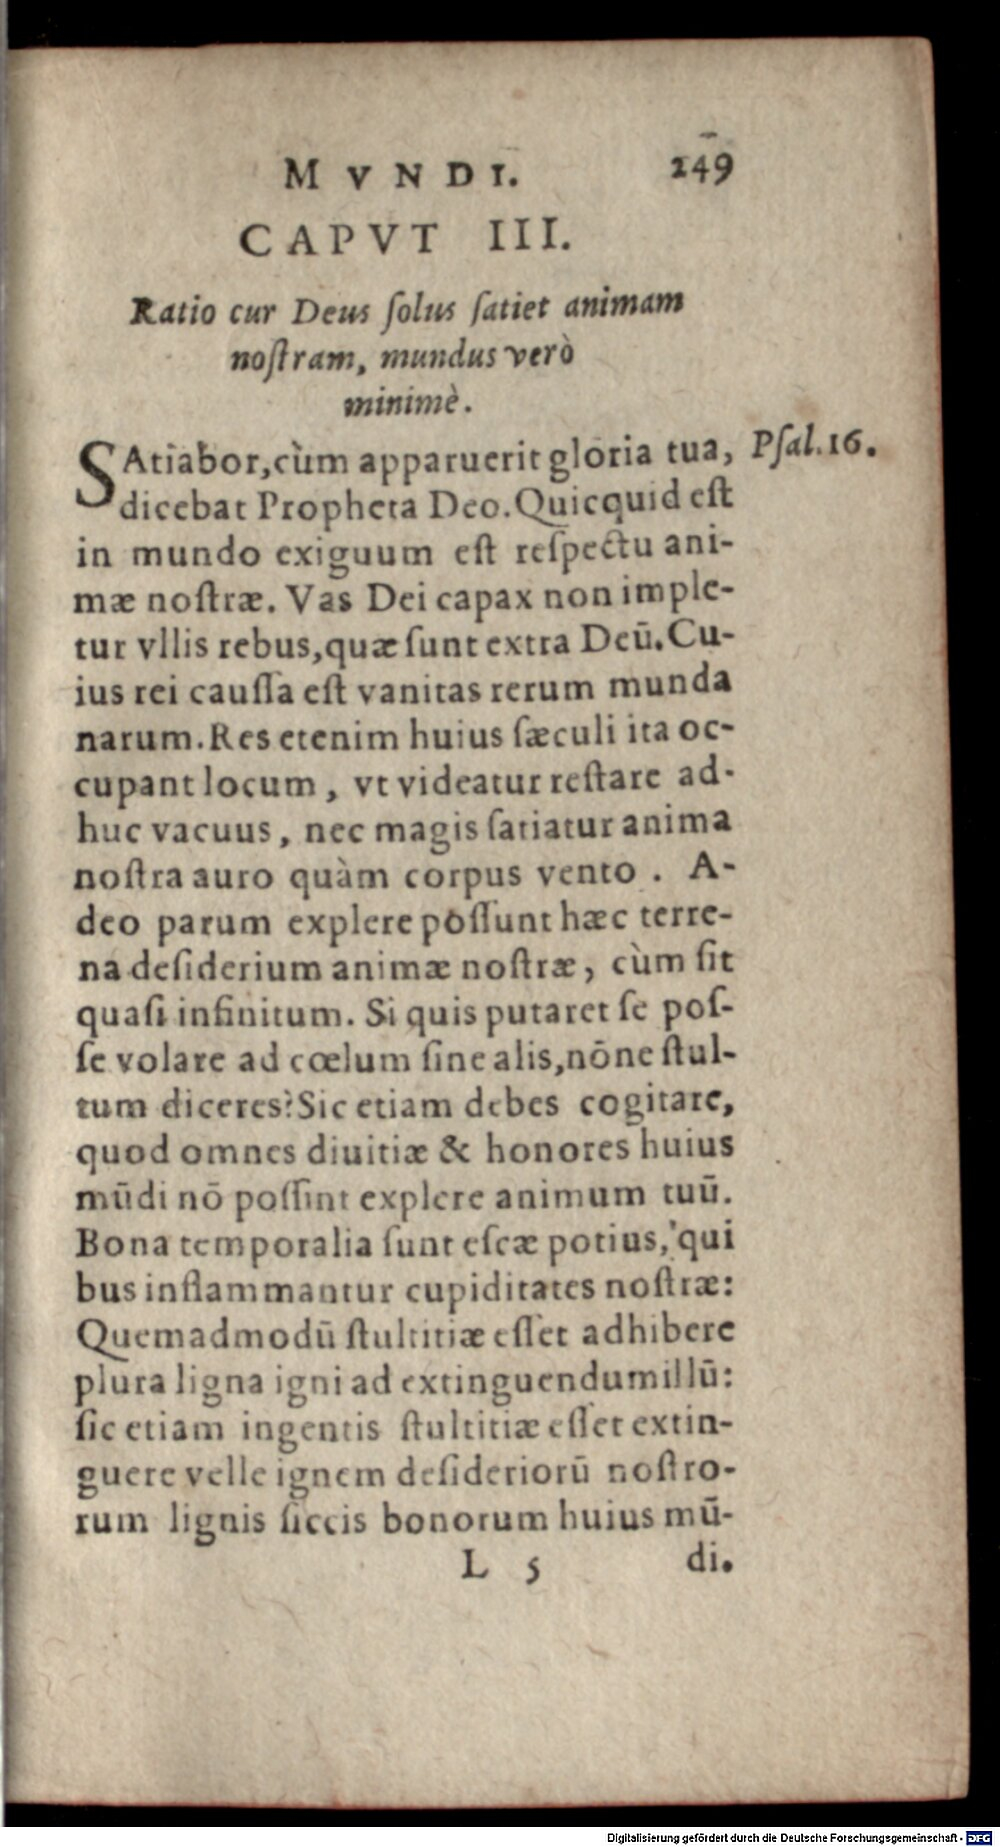 MVNDI. 249
CAPVT III.
Ratio cur Deus ſolus ſatiet animam
noſtram, mundus verò
minimè.
SAtiabor, cùm apparuerit gloria tua, Pſal. 16.
dicebat Propheta Deo. Quicquid eſt
in mundo exiguum eſt reſpectu ani-
mæ noſtræ. Vas Dei capax non imple-
tur vllis rebus, quæ ſunt extra Deū. Cu-
ius rei cauſſa eſt vanitas rerum munda
narum. Res etenim huius ſæculi ita oc-
cupant locum, vt videatur reſtare ad-
huc vacuus, nec magis ſatiatur anima
noſtra auro quàm corpus vento. A-
deo parum explere poſſunt hæc terre-
na deſiderium animæ noſtræ, cùm ſit
quaſi infinitum. Si quis putaret ſe poſ-
ſe volare ad cœlum ſine alis, nōne ſtul-
tum diceres? Sic etiam debes cogitare,
quod omnes diuitiæ & honores huius
mūdi nō poſſint explere animum tuū.
Bona temporalia ſunt eſcæ potius, qui
bus inflammantur cupiditates noſtræ:
Quemadmodū ſtultitiæ eſſet adhibere
plura ligna igni ad extinguendum illū:
ſic etiam ingentis ſtultitiæ eſſet extin-
guere velle ignem deſideriorū noſtro-
rum lignis ſiccis bonorum huius mū-
L 5 di.
Digitalisierung gefördert durch die Deutsche Forschungsgemeinschaft - DFG